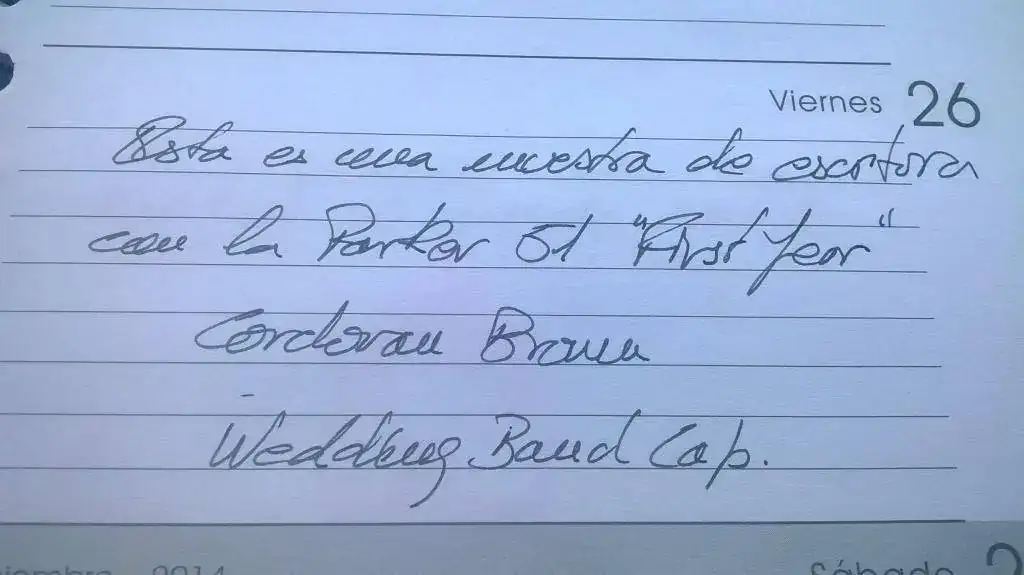 Viernes 26
Esta es una muestra de escritora
con la Parker 51 "First Year"
Cordovan Brown
Wedding Band Cap.
2014 Sábado 2